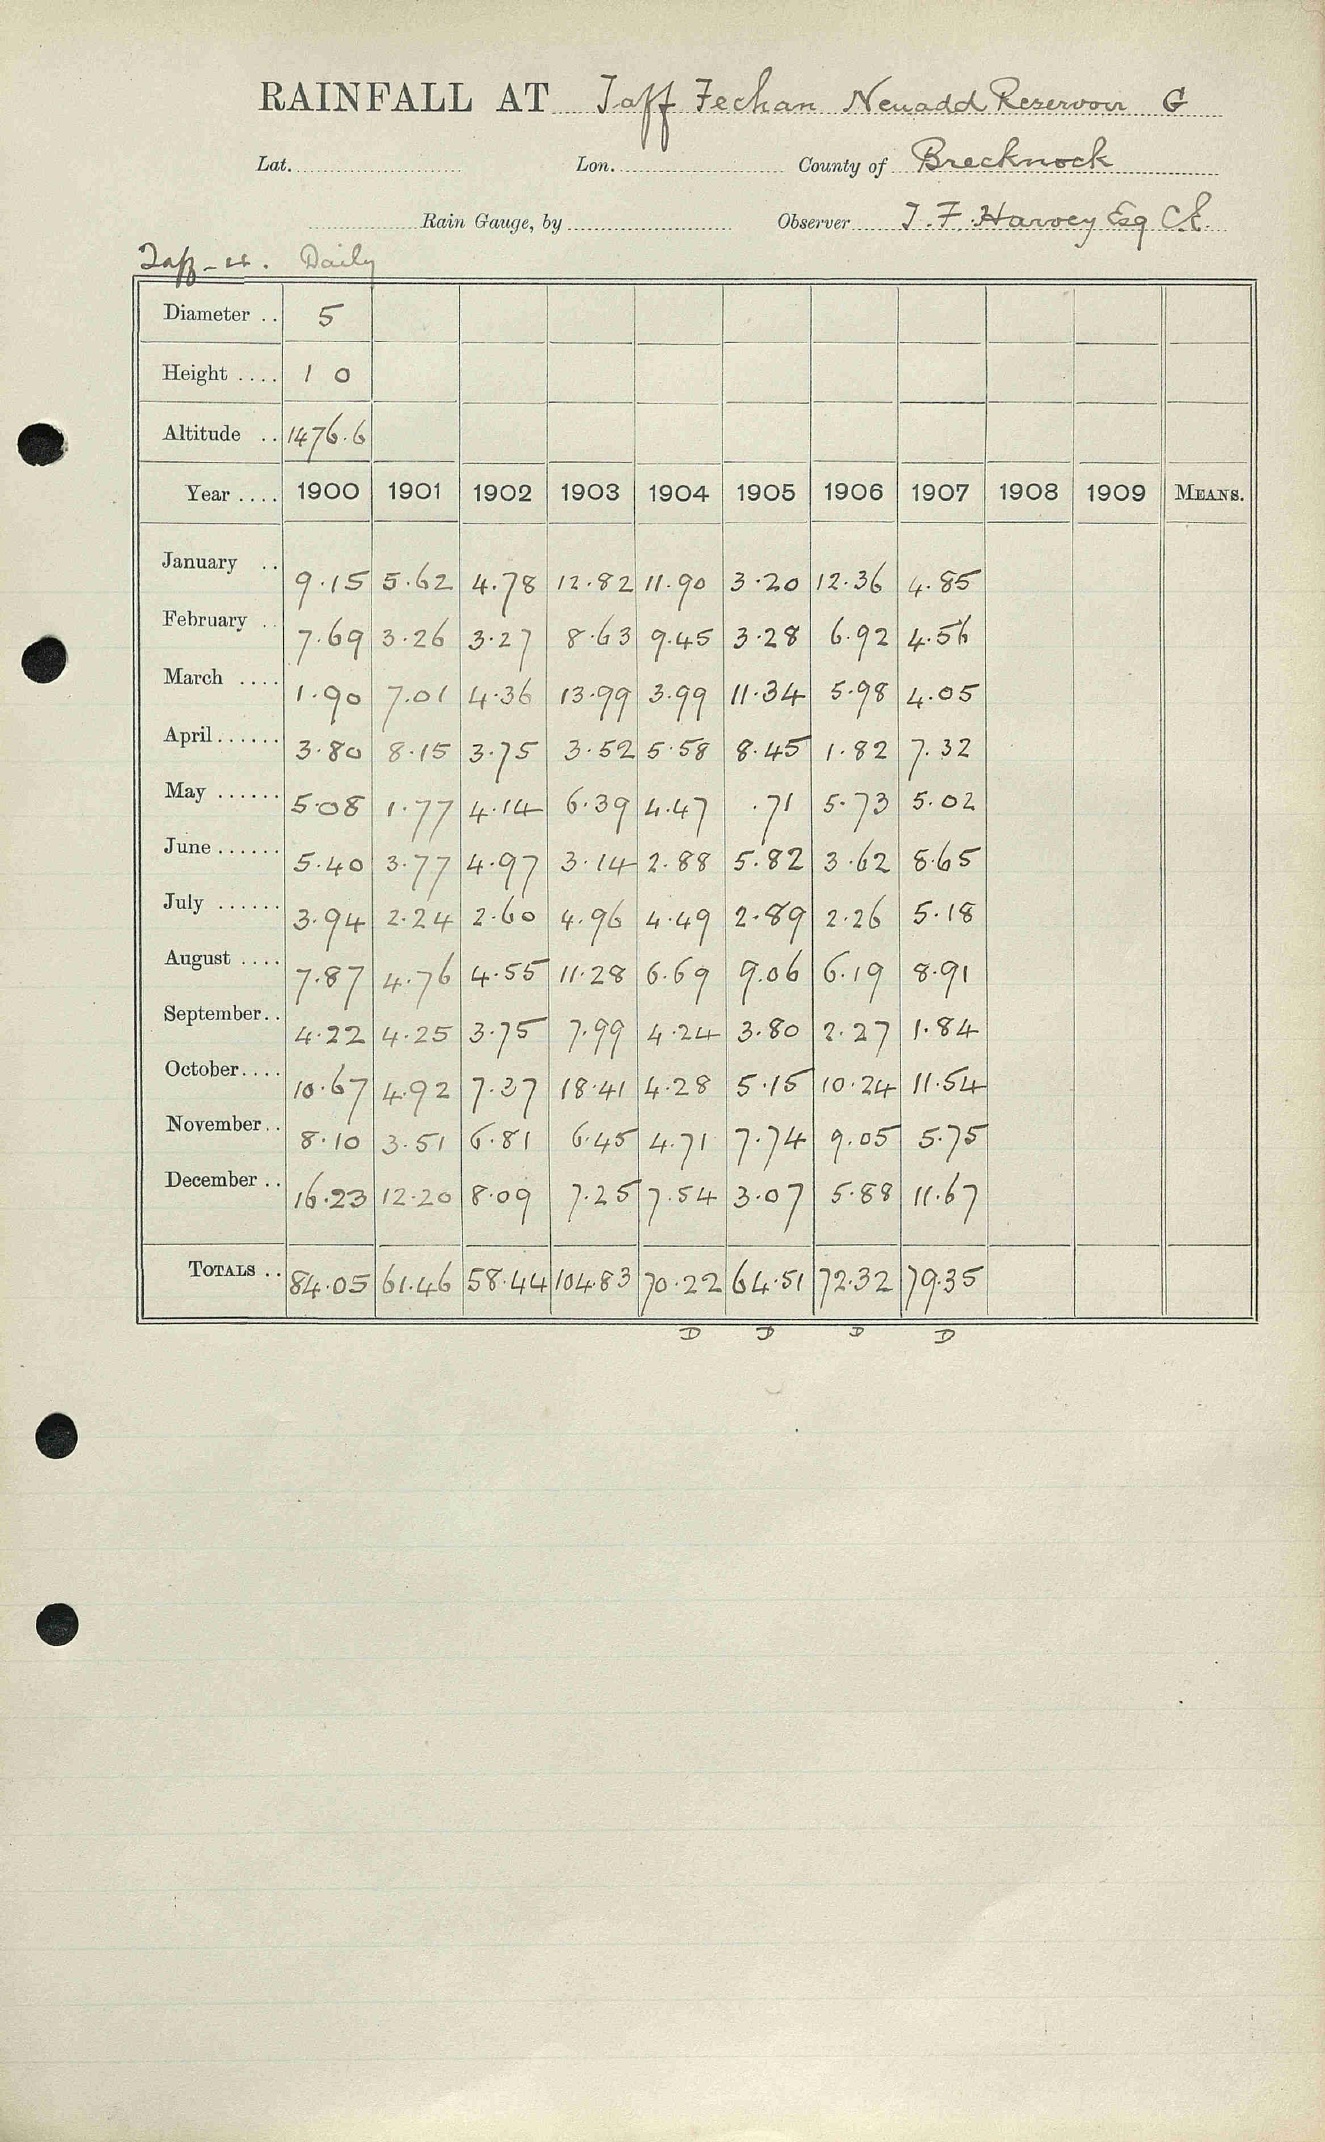 RAINFALL AT Taff Fechan Neuadd Reservoir G
Lat. Lon. County of Brecknock
Rain Gauge, by Observer T. F. Harvey Esq C.E.
Daily
Diameter .. 5
Height .... 1 0
Altitude .. 1476.6
Year .... 1900 1901 1902 1903 1904 1905 1906 1907 1908 1909 MEANS.
January .. 9.15 5.62 4.78 12.82 11.90 3.20 12.36 4.85
February .. 7.69 3.26 3.27 8.63 9.45 3.28 6.92 4.56
March .... 1.90 7.01 4.36 13.99 3.99 11.34 5.98 4.05
April...... 3.80 8.15 3.75 3.52 5.58 8.45 1.82 7.32
May ...... 5.08 1.77 4.14 6.39 4.47 .71 5.73 5.02
June...... 5.40 3.77 4.97 3.14 2.88 5.82 3.62 8.65
July ...... 3.94 2.24 2.60 4.96 4.49 2.89 2.26 5.18
August .... 7.87 4.76 4.55 11.28 6.69 9.06 6.19 8.91
September.. 4.22 4.25 3.75 7.99 4.24 3.80 2.27 1.84
October.... 10.67 4.92 7.37 18.41 4.28 5.15 10.24 11.54
November.. 8.10 3.51 6.81 6.45 4.71 7.74 9.05 5.75
December .. 16.23 12.20 8.09 7.25 7.54 3.07 5.88 11.67
TOTALS .. 84.05 61.46 58.44 104.83 70.22 64.51 72.32 79.35
D D D D